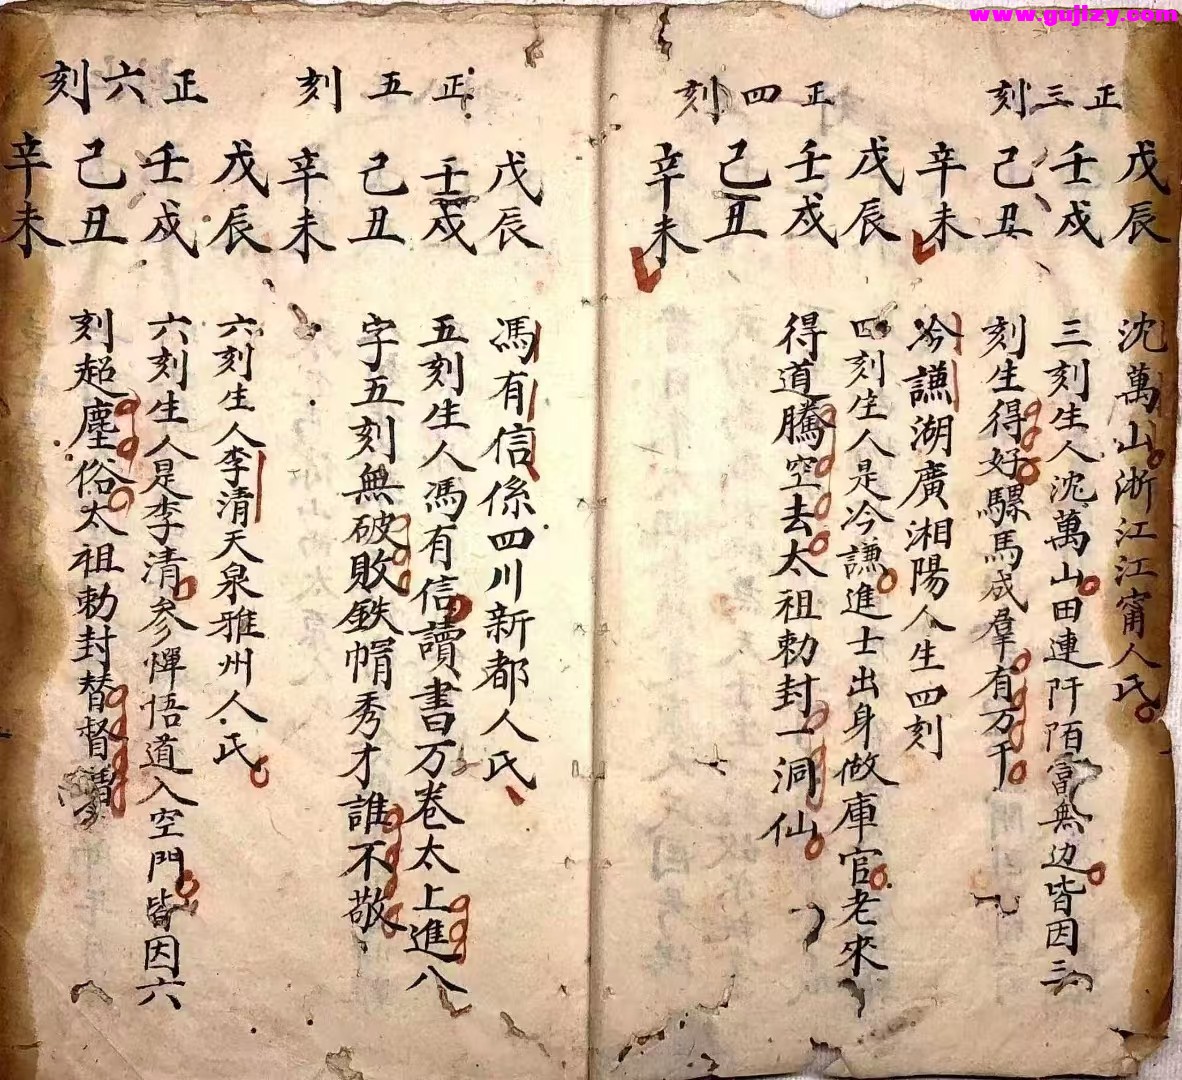 www.gujizy.com
正三刻
戊辰
壬戍
己丑
辛未
沈萬山浙江江甯人氏
三刻生人沈萬山田連阡陌富無边皆因三
刻生得好騾馬成羣有万千
正四刻
戊辰
壬戍
己丑
辛未
冷謙湖廣湘陽人生四刻
四刻生人是冷謙進士出身做庫官老來
得道騰空去太祖勅封一洞仙
正五刻
戊辰
壬戍
己丑
辛未
馮有信係四川新都人氏
五刻生人馮有信讀書万卷太上進八
字五刻無破敗鉄帽秀才誰不敬
正六刻
戊辰
壬戍
己丑
辛未
六刻生人李清天泉雅州人氏
六刻生人是李清參憚悟道入空門皆因六
刻超塵俗太祖勅封替督